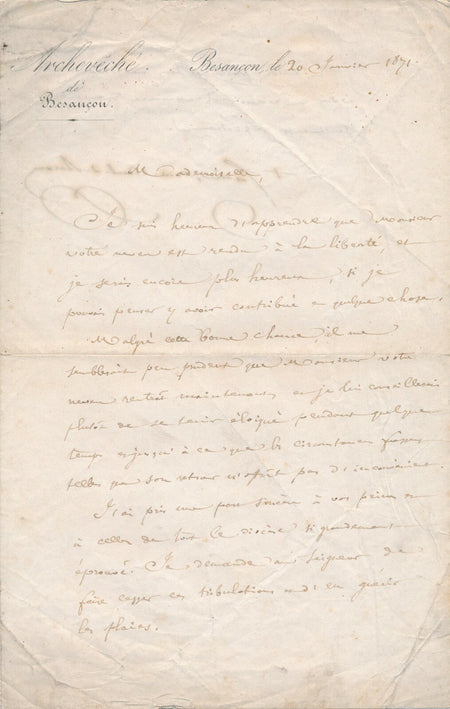 Archevêché
de
Besançon.
Besançon, le 20 Janvier 1871.
Mademoiselle,
Je suis heureux d'apprendre que Monsieur
votre neveu est rendu à la liberté, et
je serais encore plus heureux, si je
pouvais penser y avoir contribué en quelque chose.
Malgré cette bonne chance, il me
semblerait peu prudent que Monsieur votre
neveu rentrât maintenant, et je lui conseillerais
plutôt de se tenir éloigné pendant quelque
temps et jusqu'à ce que les circonstances fussent
telles que son retour n'offrît pas d'inconvénient.
J'ai pris une part sincère à vos peines et
à celles de tout le diocèse si grandement
éprouvé. Je demande au Seigneur de
faire cesser ces tribulations et d'en guérir
les plaies.